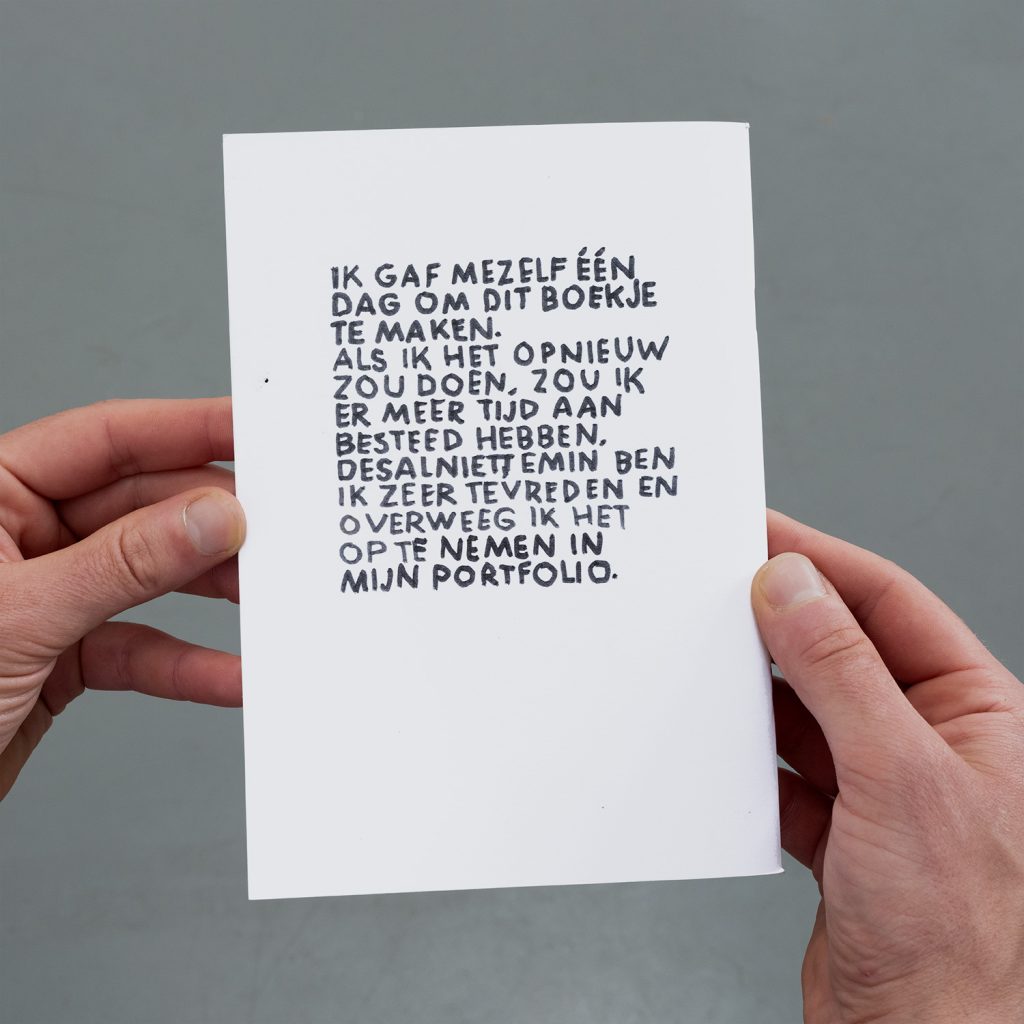 IK GAF MEZELF ÉÉN
DAG OM DIT BOEKJE
TE MAKEN.
ALS IK HET OPNIEUW
ZOU DOEN, ZOU IK
ER MEER TIJD AAN
BESTEED HEBBEN.
DESALNIETTEMIN BEN
IK ZEER TEVREDEN EN
OVERWEEG IK HET
OP TE NEMEN IN
MIJN PORTFOLIO.